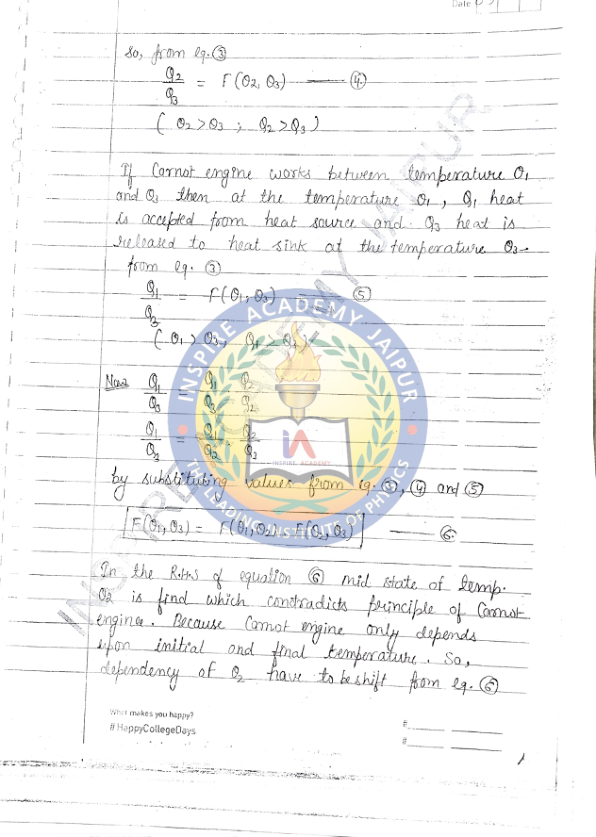 Date
So, from eq. ③
Q2/Q3 = F(θ2, θ3) —— ④
( θ2 > θ3 ; Q2 > Q3 )
If Carnot engine works between temperature θ1
and θ3 then at the temperature θ1, Q1 heat
is accepted from heat source and Q3 heat is
released to heat sink at the temperature θ3.
from eq. ③
Q1/Q3 = F(θ1, θ3) —— ⑤
( θ1 > θ3, Q1 > Q3 )
Now Q1/Q3 Q1/Q3 Q2/Q2
Q1/Q3 = Q1/Q2 · Q2/Q3
by substituting values from eq. ③, ④ and ⑤
F(θ1, θ3) = F(θ1, θ2) · F(θ2, θ3) —— ⑥
In the R.H.S of equation ⑥ mid state of temp.
θ2 is find which contradicts principle of Carnot
engine. Because Carnot engine only depends
upon initial and final temperature. So,
dependency of θ2 have to be shift from eq. ⑥
What makes you happy?
#HappyCollegeDays
#
#
INSPIRE ACADEMY JAIPUR
INSPIRE ACADEMY JAIPUR
iA
INSPIRE ACADEMY
THE LEADING INSTITUTE OF PHYSICS